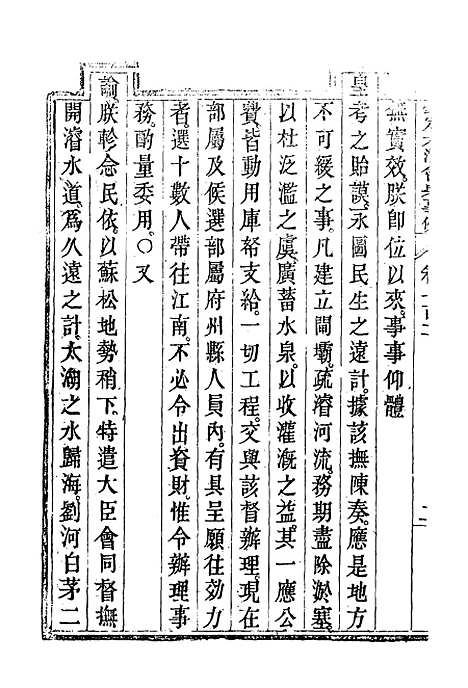 無實效。朕卽位以來。事事仰體
皇考之貽謨。永圖民生之遠計。據該撫陳奏。應是地方
不可緩之事。凡建立閘壩。疏濬河流。務期盡除淤塞。
以杜泛濫之虞。廣蓄水泉。以收灌漑之益。其一應公
費。皆動用庫帑支給。一切工程。交與該督辦理。現在
部屬及候選部屬府州縣人員內。有具呈願往効力
者。選十數人帶往江南。不必令出資財。惟令辦理事
務。酌量委用。○又
諭。朕軫念民依。以蘇松地勢稍下。特遣大臣會同督撫
開濬水道。爲久遠之計。太湖之水歸海。劉河白茅二